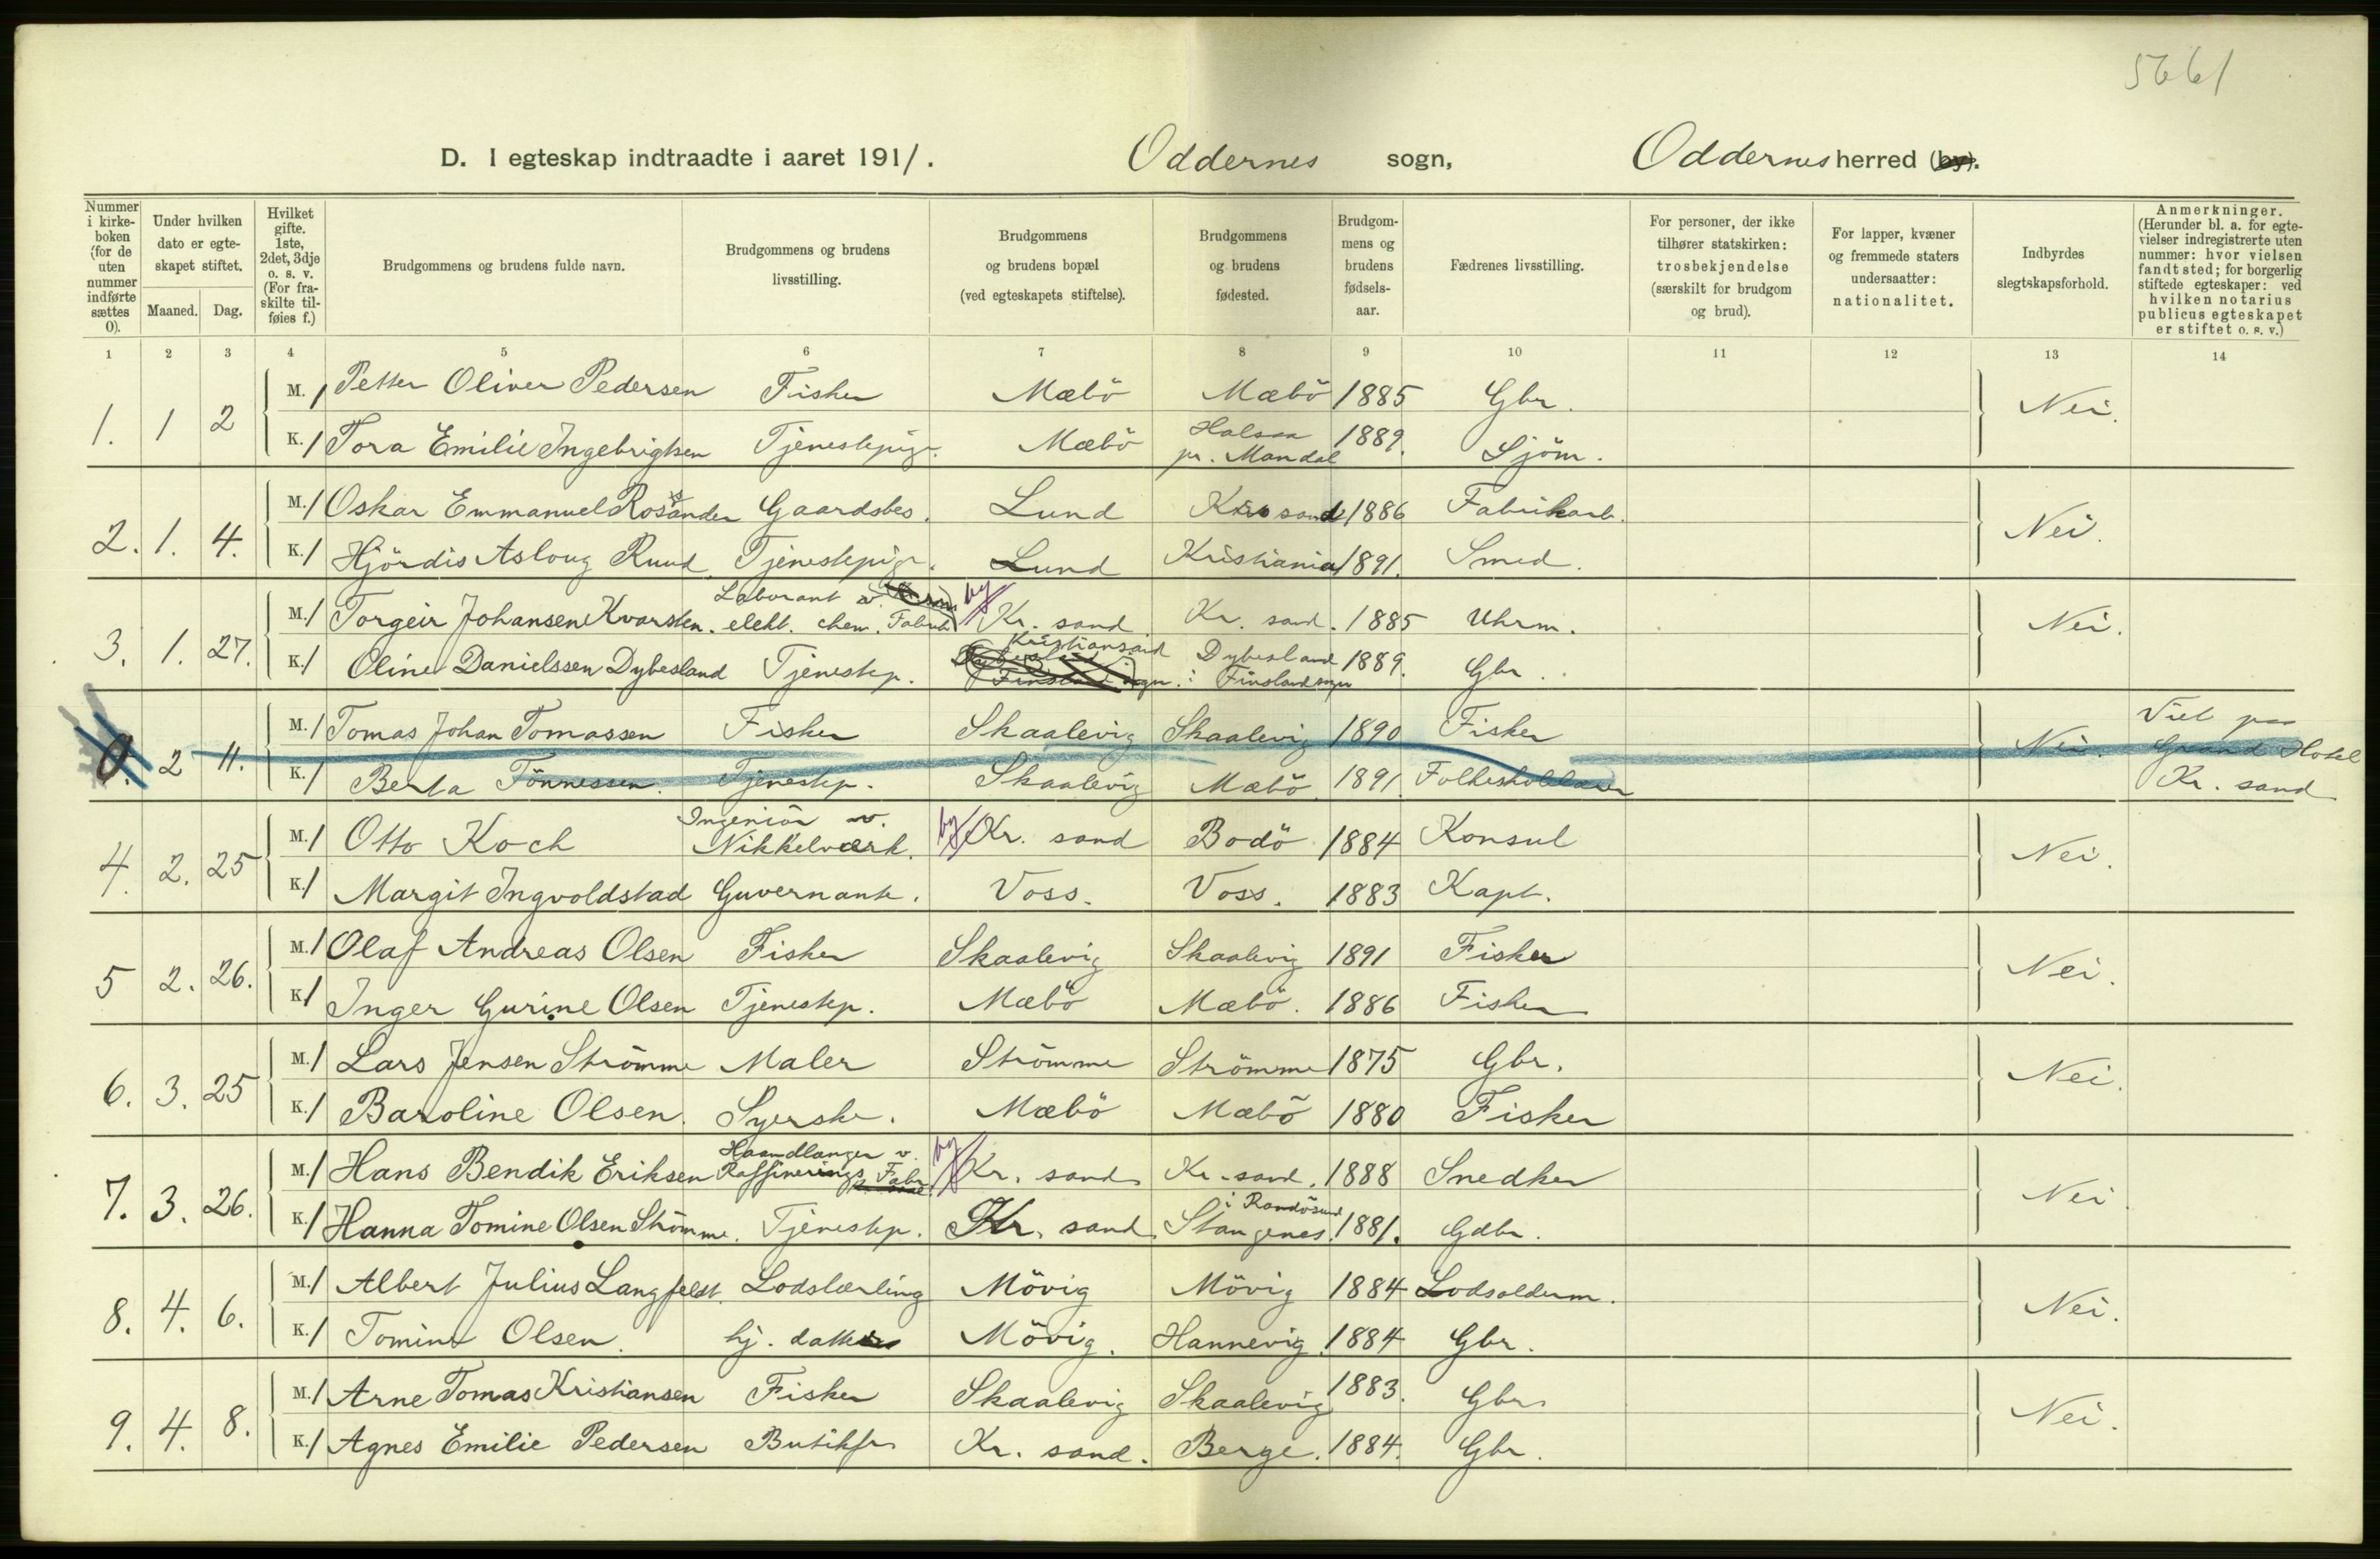 5661
D. I egteskap indtraadte i aaret 1911. Oddernes sogn, Oddernes herred (by).
Nummer i kirke-boken (for de uten nummer indførte sættes 0).
Under hvilken dato er egte-skapet stiftet.
Maaned. Dag.
Hvilket gifte. 1ste, 2det, 3dje o. s. v. (For fra-skilte til-føies f.)
Brudgommens og brudens fulde navn.
Brudgommens og brudens livsstilling.
Brudgommens og brudens bopæl (ved egteskapets stiftelse).
Brudgommens og brudens fødested.
Brudgom-mens og brudens fødsels-aar.
Fædrenes livsstilling.
For personer, der ikke tilhører statskirken: trosbekjendelse (særskilt for brudgom og brud).
For lapper, kvæner og fremmede staters undersaatter: nationalitet.
Indbyrdes slegtskapsforhold.
Anmerkninger. (Herunder bl. a. for egte-vielser indregistrerte uten nummer: hvor vielsen fandt sted; for borgerlig stiftede egteskaper: ved hvilken notarius publicus egteskapet er stiftet o. s. v.)
1 2 3 4 5 6 7 8 9 10 11 12 13 14
1. 1 2 M. 1 Petter Oliver Pedersen Fisker Mæbö Mæbö 1885 Gbr. Nei.
K. 1 Tora Emilie Ingebrigtsen Tjenestepige. Mæbö Halsaa pr. Mandal 1889. Sjöm.
2. 1. 4. M. 1 Oskar Emmanuel Rosander Gaardsbes. Lund Krssand 1886 Fabrikarb. Nei.
K. 1 Hjördis Asloug Ruud Tjenestepige. Lund Kristiania 1891. Smed.
3. 1. 27. M. 1 Torgeir Johansen Kvarsten. Laborant v. elekt. chem. Fabrik by Kr. sand Kr. sand. 1885 Uhrm. Nei.
K. 1 Oline Danielssen Dybesland Tjenestep. Kristiansand Dybesland i Finsland sogn 1889. Gbr.
0. 2 11. M. 1 Tomas Johan Tomassen Fisker Skaalevig Skaalevig 1890 Fisker Nei. Viet paa Grand Hotel Kr. sand
K. 1 Berta Tönnessen. Tjenestep. Skaalevig Mæbö. 1891. Folkeskollærer
4. 2. 25 M. 1 Otto Koch Ingeniör v. Nikkelværk. by Kr. sand Bodö 1884 Konsul Nei.
K. 1 Margit Ingvoldstad Guvernante. Voss. Voss. 1883 Kapt.
5 2. 26. M. 1 Olaf Andreas Olsen Fisker Skaalevig Skaalevig 1891 Fisker Nei.
K. 1 Inger Gurine Olsen Tjenestep. Mæbö Mæbö. 1886 Fisker
6. 3. 25 M. 1 Lars Jensen Strömme Maler Strömme Strömme 1875 Gbr. Nei.
K. 1 Baroline Olsen. Syerske. Mæbö Mæbö 1880 Fisker
7. 3. 26. M. 1 Hans Bendik Eriksen Haandlanger v. Raffinerings Fabr. by Kr. sand Kr. sand. 1888 Snedker Nei
K. 1 Hanna Tomine Olsen Strömme. Tjenestep. Kr. sand. Stangenes i Randösund 1881. Gdbr.
8. 4. 6. M. 1 Albert Julius Langfeldt. Lodslærling Mövig Mövig 1884 Lodsolderm. Nei.
K. 1 Tomine Olsen. hj. datter Mövig. Hannevig. 1884 Gbr.
9. 4. 8. M. 1 Arne Tomas Kristiansen Fisker Skaalevig Skaalevig 1883. Gbr. Nei.
K. 1 Agnes Emilie Pedersen Butikfr. Kr. sand. Berge. 1884. Gbr.